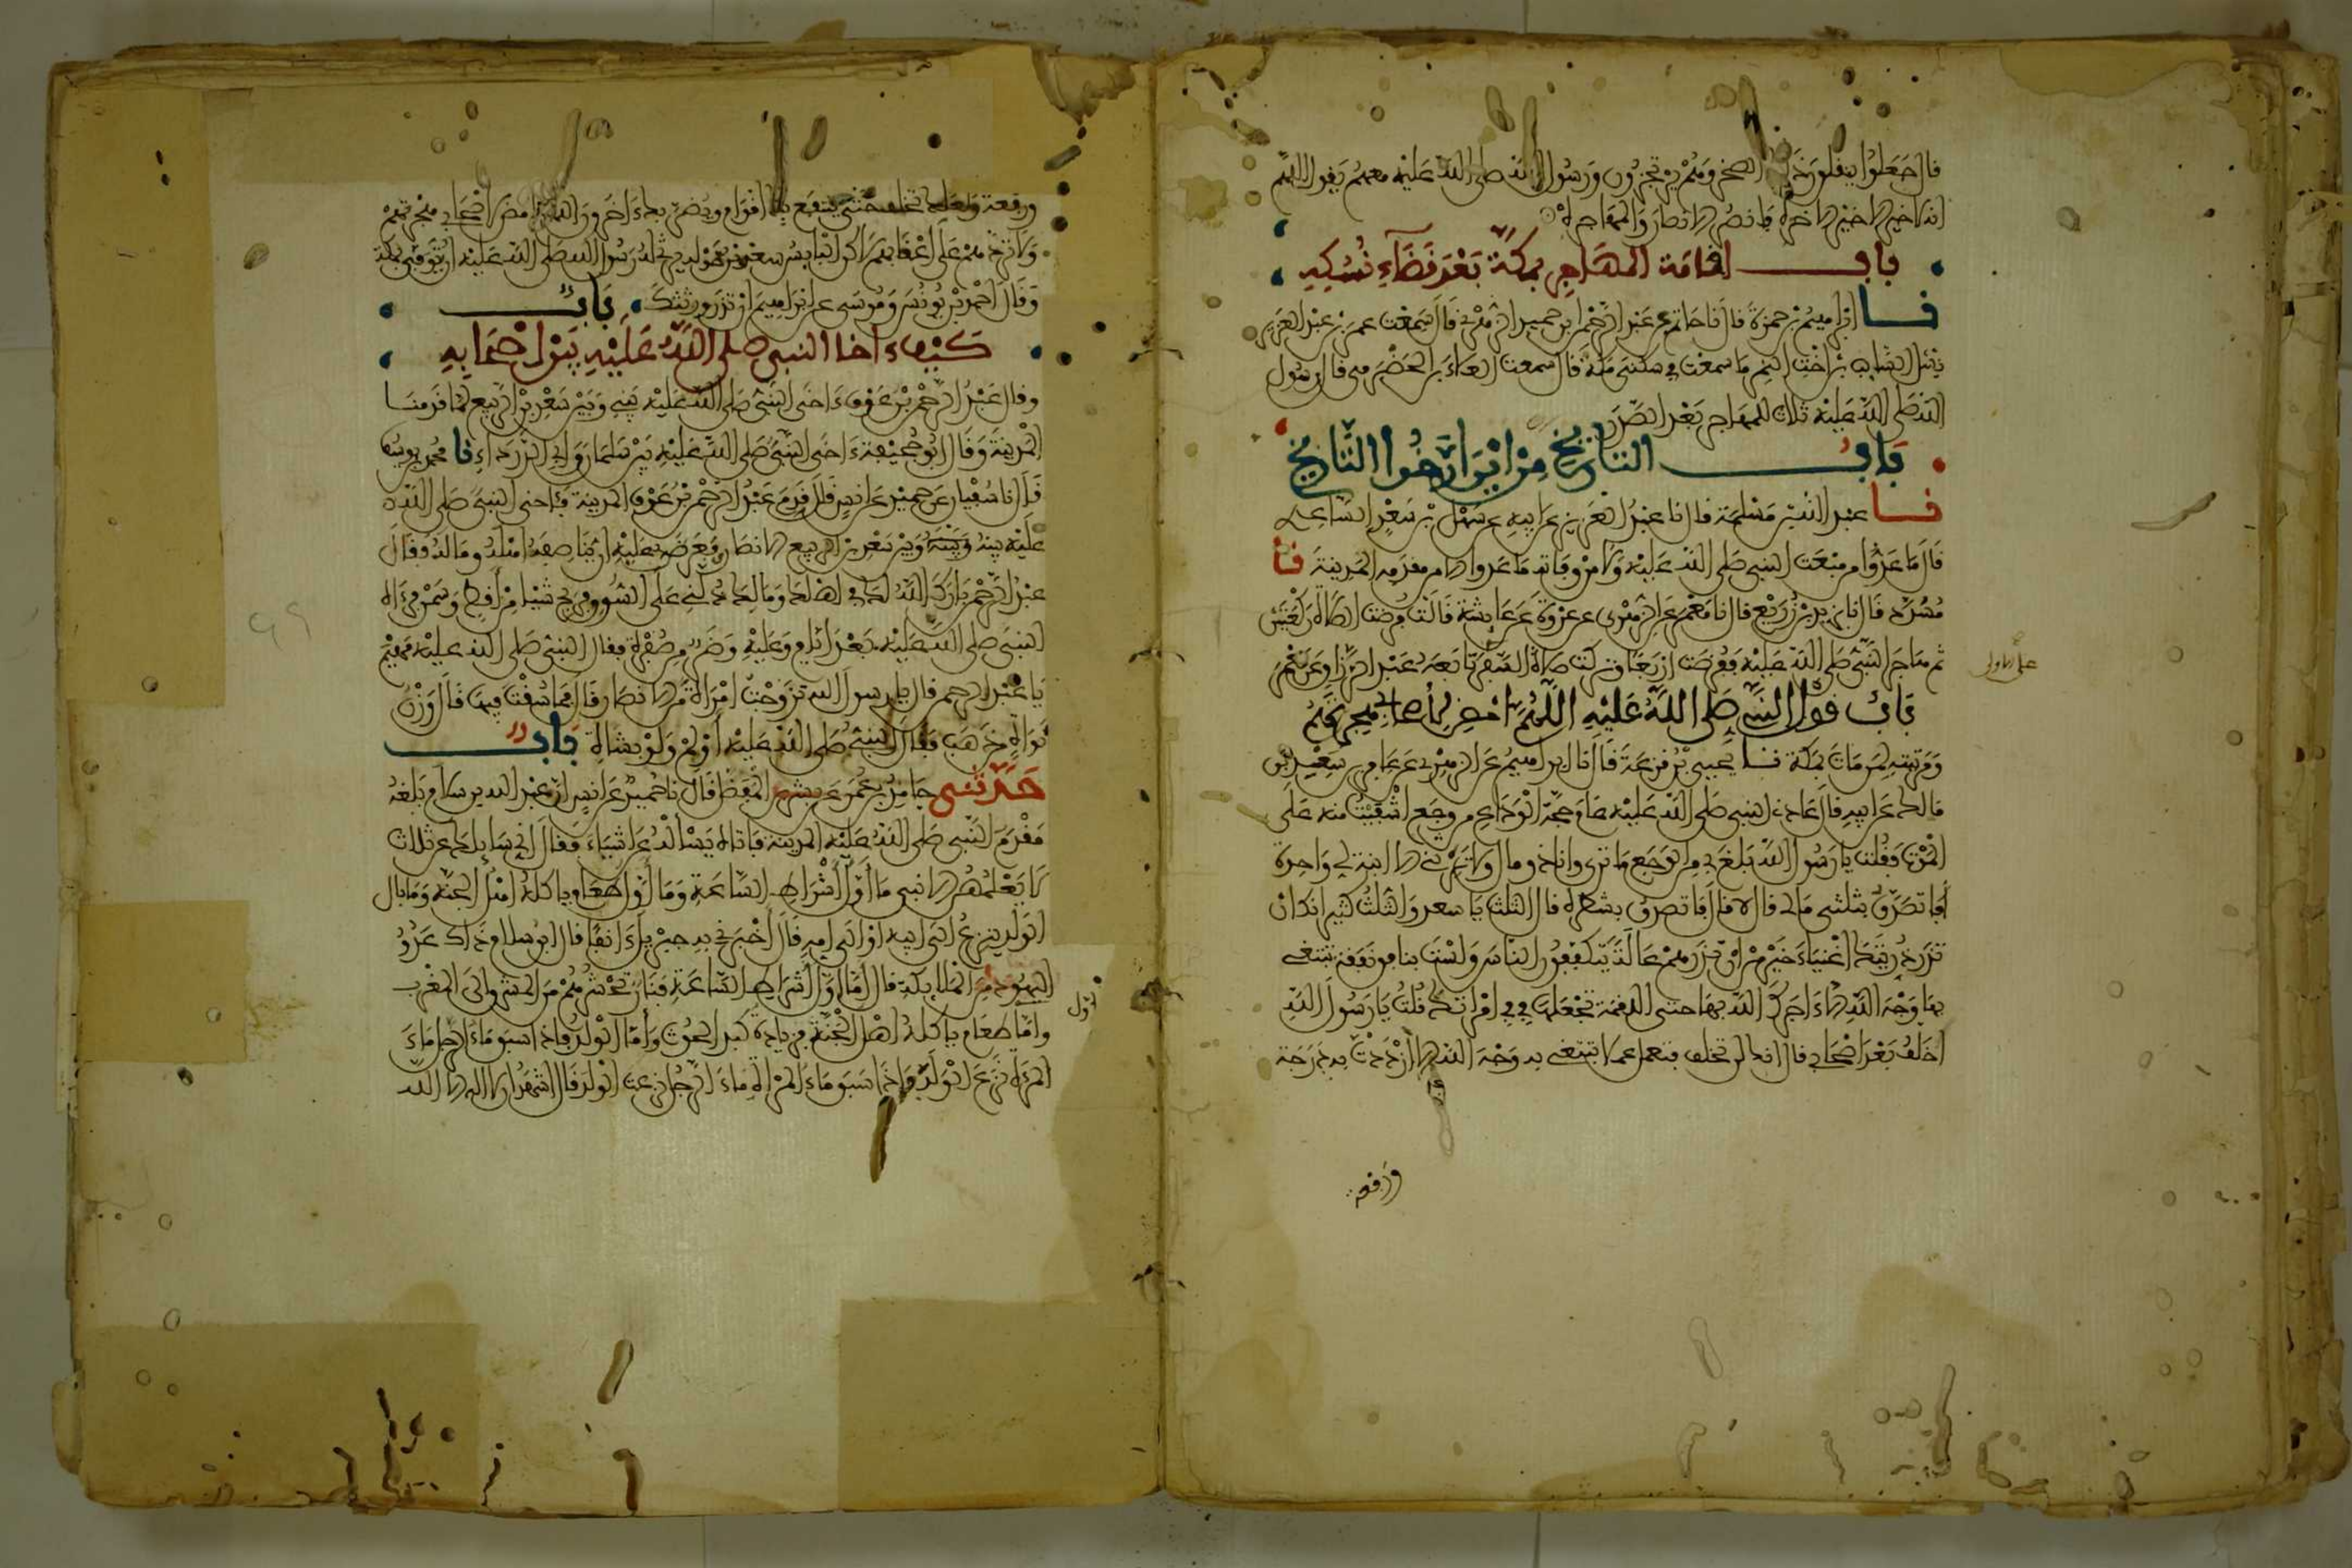 قال فجعلوا ينقلون ذلك الصخر وهم يرتجزون ورسول الله صلى الله عليه معهم يقول اللهم
انه لا خير الا خير الاخره فانصر الانصار والمهاجره
باب اقامة المهاجر بمكة بعد قضاء نسكه
نا ابراهيم بن حمزة قال نا حاتم عن عبد الرحمن بن حميد الزهري قال سمعت عمر بن عبد العزيز
يسئل السائب بن اخت النمر ما سمعت في سكنى مكة قال سمعت العلاء بن الحضرمي قال رسول
الله صلى الله عليه ثلاث للمهاجر بعد الصدر
باب التاريخ من اين ارخوا التاريخ
نا عبد الله بن مسلمة قال نا عبد العزيز عن ابيه عن سهل بن سعد الساعدي
قال ما عدوا من مبعث النبي صلى الله عليه ولا من وفاته ما عدوا الا من مقدمه المدينة نا
مسدد قال نا يزيد بن زريع قال نا معمر عن الزهري عن عروة عن عايشة قالت فرضت الصلاة ركعتين
ثم هاجر النبي صلى الله عليه ففرضت اربعا وتركت صلاة السفر تابعه عبد الرزاق عن معمر
على الاولى
باب قول النبي صلى الله عليه اللهم امض لاصحابي هجرتهم
ومرثيته لمن مات بمكة نا يحيى بن قزعة قال نا ابراهيم عن الزهري عن عامر بن سعد بن
مالك عن ابيه قال عادني النبي صلى الله عليه عام حجة الوداع من وجع اشفيت منه على
الموت فقلت يا رسول الله بلغ بي من الوجع ما ترى وانا ذو مال ولا يرثني الا ابنة لي واحدة
افاتصدق بثلثي مالي قال لا قال افاتصدق بشطره قال الثلث يا سعد والثلث كثير انك ان
تذر ذريتك اغنياء خير من ان تذرهم عالة يتكففون الناس ولست بنافق نفقة تبتغي
بها وجه الله الا ءاجرك الله بها حتى اللقمة تجعلها في في امراتك قلت يا رسول الله
اخلف بعد اصحابي قال انك لن تخلف فتعمل عملا تبتغي به وجه الله الا ازددت به درجة
ورفعة
ورفعة ولعلك تخلف حتى ينتفع بك اقوام ويضر بك ءاخرون اللهم امض لاصحابي هجرتهم
ولا تردهم على اعقابهم لاكن البايس سعد بن خولة يرثي له رسول الله صلى الله عليه ان توفي بمكة
وقال احمد بن يونس وموسى عن ابراهيم ان تذر ورثتك باب
كيف ءاخا النبي صلى الله عليه بين اصحابه
وقال عبد الرحمن بن عوف ءاخى النبي صلى الله عليه بيني وبين سعد بن الربيع لما قدمنا
المدينة وقال ابو جحيفة ءاخى النبي صلى الله عليه بين سلمان وابي الدرداء نا محمد بن يوسف
قال نا سفيان عن حميد عن انس قال قدم عبد الرحمن بن عوف المدينة فئاخى النبي صلى الله
عليه بينه وبين سعد بن الربيع الانصاري فعرض عليه ان يناصفه اهله وماله فقال
عبد الرحمن بارك الله لك في اهلك ومالك دلني على السوق فربح شيئا من اقط وسمن فرءاه
النبي صلى الله عليه بعد ايام وعليه وضر من صفرة فقال النبي صلى الله عليه مهيم
يا عبد الرحمن قال يا رسول الله تزوجت امراة من الانصار قال فما سقت فيها قال وزن
نواة من ذهب فقال النبي صلى الله عليه اولم ولو بشاة باب
حدثني حامد بن عمر عن بشر بن المفضل قال نا حميد عن انس ان عبد الله بن سلام بلغه
مقدم النبي صلى الله عليه المدينة فاتاه يسأله عن اشياء فقال اني سايلك عن ثلاث
لا يعلمهن الا نبي ما اول اشراط الساعة وما اول طعام ياكله اهل الجنة وما بال
الولد ينزع الى ابيه او الى امه قال اخبرني به جبريل ءانفا قال ابن سلام ذاك عدو
اليهود من الملايكة قال اما اول اشراط الساعة فنار تحشرهم من المشرق الى المغرب
اول
واما طعام ياكله اهل الجنة فزيادة كبد الحوت واما الولد فاذا سبق ماء الرجل ماء
المرءاة نزع الولد واذا سبق ماء المراة ماء الرجل نزعت الولد قال اشهد ان لا اله الا الله